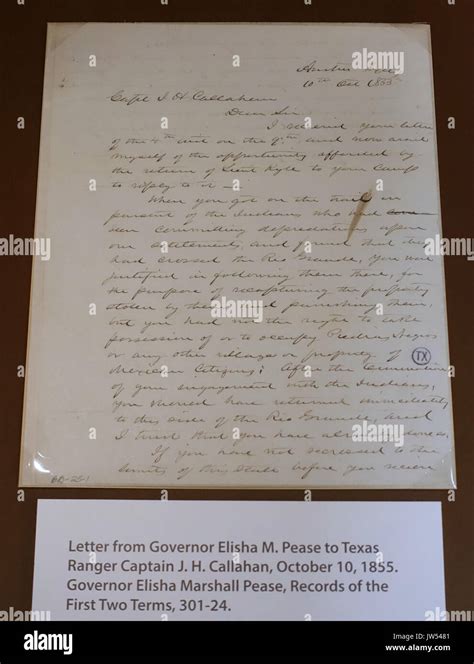 Austin Texas
10th Oct 1855
Capt J. H. Callahan
Dear Sir
I received your letter
of the 4th inst on the 9th, and now avail
myself of the opportunity afforded by
the return of Lieut Kyle to your Camp
to reply to it —
When you got on the trail in
pursuit of the Indians who had
been committing depredations upon
our settlements, and found that they
had crossed the Rio Grande, you was
justified in following them there, for
the purpose of recapturing the property
stolen by them and punishing them,
but you had not the right to take
possession of or to occupy Piedras Negras
or any other village or property of
Mexican Citizens; After the termination
of your engagement with the Indians,
you should have returned immediately
to this side of the Rio Grande, and
I trust that you have already done so.
If you have not recrossed to the
limits of this State before you receive
TX
Letter from Governor Elisha M. Pease to Texas
Ranger Captain J. H. Callahan, October 10, 1855.
Governor Elisha Marshall Pease, Records of the
First Two Terms, 301-24.
alamy stock photo
JW5481